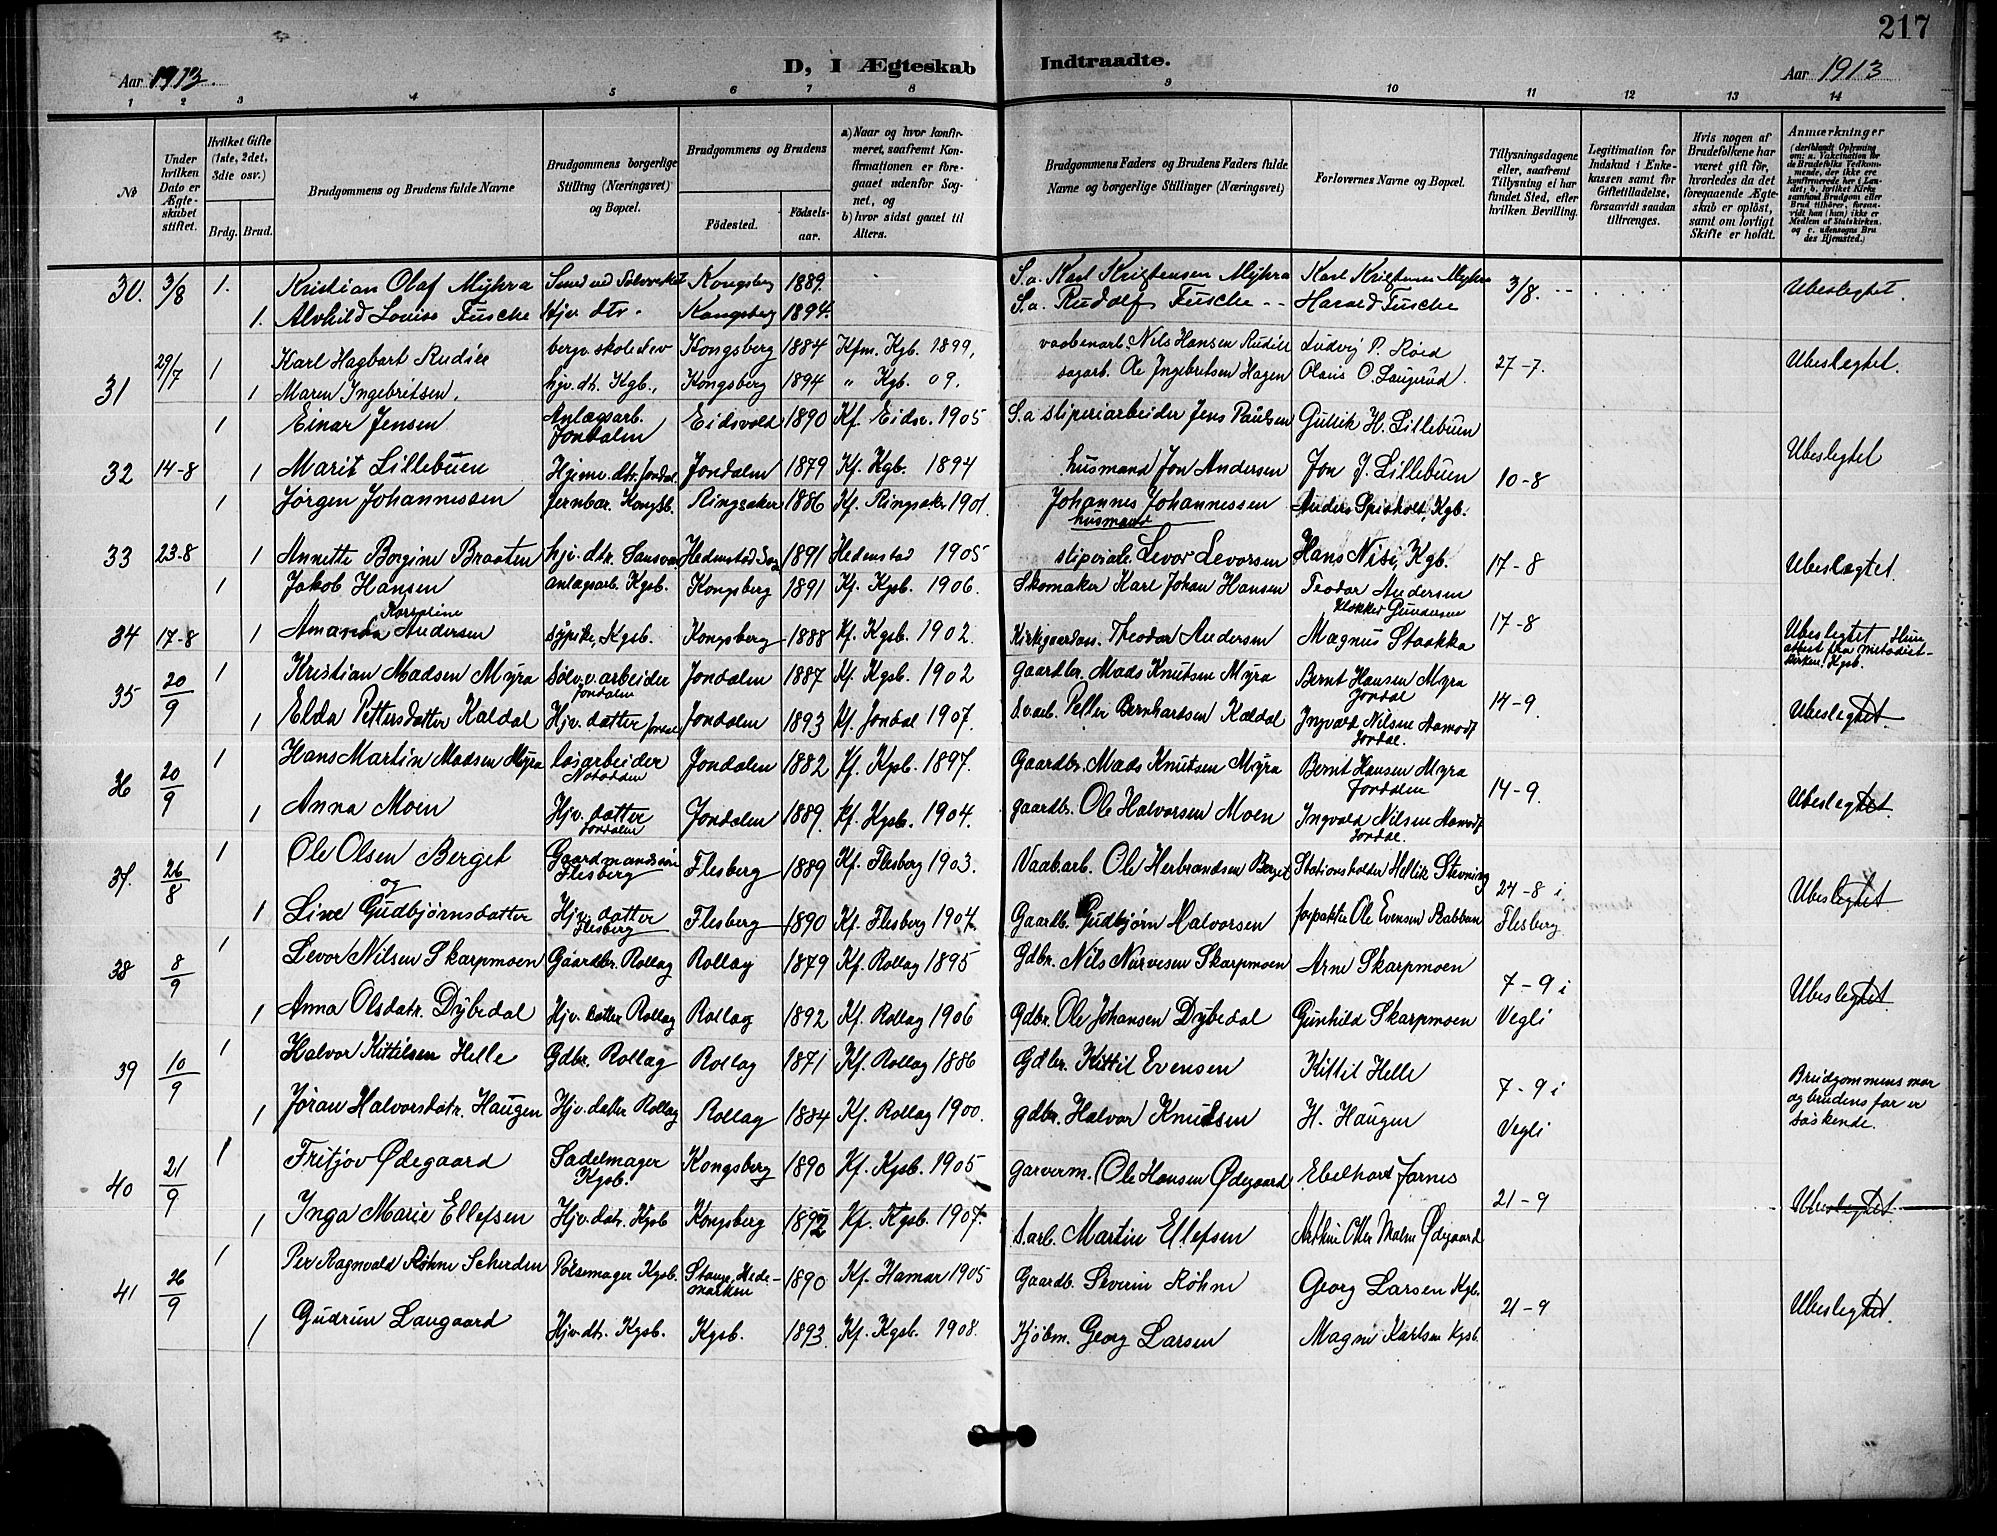 217
Aar 1913.
D, I Ægteskab Indtraadte.
Aar 1913
1 2 3 4 5 6 7 8 9 10 11 12 13 14
No
Under hvilken Dato er Ægteskabet stiftet.
Hvilket Gifte (1ste, 2det, 3die osv.)
Brdg. Brud.
Brudgommens og Brudens fulde Navne
Brudgommens borgerlige Stilling (Næringsvei) og Bopæl.
Brudgommens og Brudens
Fødested.
Fødselsaar.
a) Naar og hvor konfirmeret, saafremt Konfirmationen er foregaaet udenfor Sognet, og
b) hvor sidst gaaet til Alters.
Brudgommens Faders og Brudens Faders fulde Navne og borgerlige Stillinger (Næringsvei)
Forlovernes Navne og Bopæl.
Tillysningsdagene eller, saafremt Tillysning ei har fundet Sted, efter hvilken Bevilling.
Legitimation for Indskud i Enkekassen samt for Giftetilladelse, forsaavidt saadan tiltrænges.
Hvis nogen af Brudefolkene har været gift før, hvorledes da det foregaaende Ægteskab er opløst, samt om lovligt Skifte er holdt.
Anmærkninger (deriblandt Oplysning om: a. Vakcination for de Brudefolks Vedkommende, der ikke ere konfirmerede her i Landet; b. hvilket Kirkesamfund Brudgom eller Brud tilhører, forsaavidt han (hun) ikke er Medlem af Statskirken, og c. udensogns Brudes Hjemsted.)
30. 3/8 1. Kristian Olaf Myhra Smed ved Sølvverket Kongsberg 1889. S.a. Karl Kristensen Myhra Karl Kristensen Myhra 3/8. Ubeslegtet.
1. Alvhild Louise Fusche Hjv. dtr. Kongsberg 1894. S.a. Rudolf Fusche Harald Fusche
31 29/7 1 Karl Hagbart Rudsie bergv. skole elev Kongsberg 1884 Kfm. Kgb. 1899, vaabenarb. Nils Hansen Rudsie Ludvig P. Røed 27-7. Ubeslegtet.
1 Maren Ingebritsen. hjv. dt. Kgb., Kongsberg 1894 " Kgb. 09. sagarb. Ole Ingebretsen Hagen Olaus O. Laugerud.
1 Einar Jensen Anlægsarb. Jondalen Eidsvold 1890 Kf. Eidsv. 1905 S.a sliperiarbeider Jens Paulsen Gulik H. Lillebuen
32 14-8 1 Marit Lillebuen Hjeme. dtr. Jondal. Jondalen 1879 Kf. Kgb. 1894 husmand Jon Andersen Jon J. Lillebuen 10-8 Ubeslegtet
1 Jørgen Johannessen Jernbar. Kongsb. Ringsaker 1886 Kf. Ringsaker 1901. Johannes Johannessen husmand Anders Spisholt, Kgb.
33 23-8 1 Annette Borgine Braaten hjv. dtr. Sansvær Hedenstad San 1891 Hedenstad 1905 sliperiab. Levor Levorsen Hans Nisi, Kgb. 17-8 Ubeslægtet.
1 Jakob Hansen anlægsarb. Kgsb. Kongsberg 1891 Kf. Kgsb. 1906. Skomaker Karl Johan Hansen Teodor Andersen
34 17-8 1 Amanda Karoline Andersen sypike, Kgsb. Kongsberg 1888 Kf. Kgsb. 1902. Kirkegaardsm. Theodor Andersen Klokker Gundersen Magnus Staakka 17-8 Ubeslegtet Hun attest fra Metodistkirken. Kgsb.
35 20/9 1 Kristian Madsen Myra Sølv.v. arbeider Jondalen Jondalen 1887 Kf. Kgsb. 1902 Gaardbr. Mads Knutsen Myra Bernt Hansen Myra Jordal 14-9. Ubeslegtet.
1 Elda Pettersdatter Kaldal Hjv. datter Jondal Jondalen 1893 Kf. Jondal 1907. S.v.arb. Petter Bernhardsen Kaldal Ingvald Nilsen Aamodt Jordal.
36 20/9 1 Hans Martin Madsen Myra løsarbeider Notodden Jondalen 1882 Kf. Kgsb. 1897. Gaardbr. Mads Knutsen Myra Bernt Hansen Myra Jondalen 14-9. Ubeslegtet
1 Anna Moen Hjv. datter Jondalen Jondalen 1889. Kf. Kgsb. 1904. gaardbr. Ole Halvorsen Moen Ingvald Nilsen Aamodt Jordal.
37. 26/8 1 Ole Olsen Berget og Gaardmandssøn Flesberg Flesberg 1889 Kf. Flesberg 1903. Vaab.arb. Ole Herbrandsen Berget Stationsholder Mellik Stevning 24-8 i Ubeslegtet
1 Line Gudbjørnsdatter Hjv. datter Flesberg Flesberg 1890 Kf. Flesberg 1904. Gaardb. Gudbjørn Halvorsen forpakter Ole Evensen Rabban Flesberg.
38 8/9 1 Levor Nilsen Skarpmoen Gaardbr. Rollag Rollag 1879 Kf. Rollag 1895 Gdbr. Nils Narvesen Skarpmoen Arne Skarpmoen 7-9 i Ubeslegtet
1 Anna Olsdatr. Dybedal Hjv. datter Rollag Rollag 1892 Kf. Rollag 1906 Gdbr. Ole Johansen Dybedal Gunhild Skarpmoen Vegli
39 10/9 1 Halvor Kittilsen Helle Gdbr. Rollag Rollag 1871 Kf. Rollag 1886 Gdbr. Kittil Evensen Kittil Helle 7-9 i Brudgommens mor og brudens far er søskende.
1 Jøran Halvorsdatr. Haugen Hjv. datter Rollag Rollag 1884 Kf. Rollag 1900. gdbr. Halvor Knudsen H. Haugen Vegli
40 21/9 1 Fritjov Ødegaard Sadelmager Kgsb. Kongsberg 1890 Kf. Kgsb. 1905 garverm. Ole Hansen Ødegaard Ebelhart Jarnes 21-9 Ubeslegtet.
1 Inga Marie Ellefsen Hjv. datr. Kgsb Kongsberg 1892 Kf. Kgsb. 1907. S.arb. Martin Ellefsen Arthur Otter Malm Ødegaard
41 26/9 1 Per Ragnvald Røhne Scherden Pølsemager Kgsb. Stange, Hedemarken 1890 Kf. Hamar 1905 Gaardb. Severin Røhne Georg Larsen Kgb. 21-9 Ubeslegtet.
1 Gudrun Langaard Hjv. dt. Kgsb. Kgsb. 1893. Kf. Kgsb. 1908. Kjøbm. Georg Larsen Magne Karlsen Kgsb.